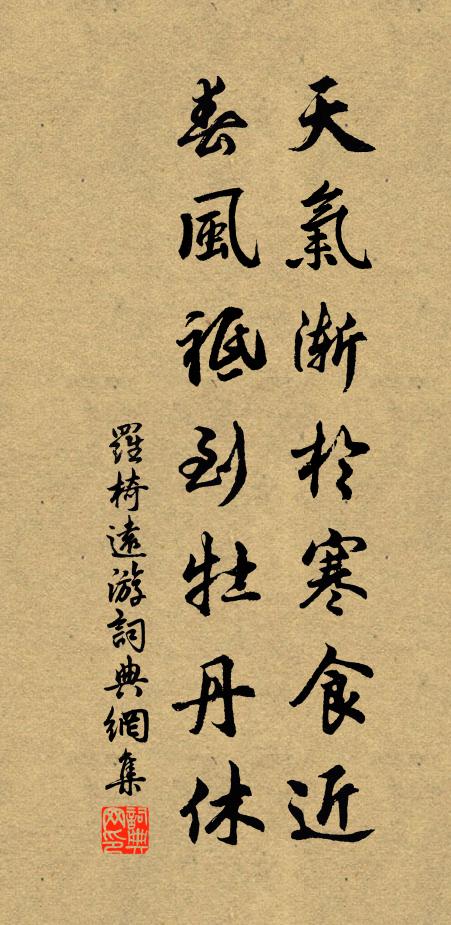 天氣漸於寒食近
春風祗到牡丹休
羅椅遠游詞典網集
詞典网印